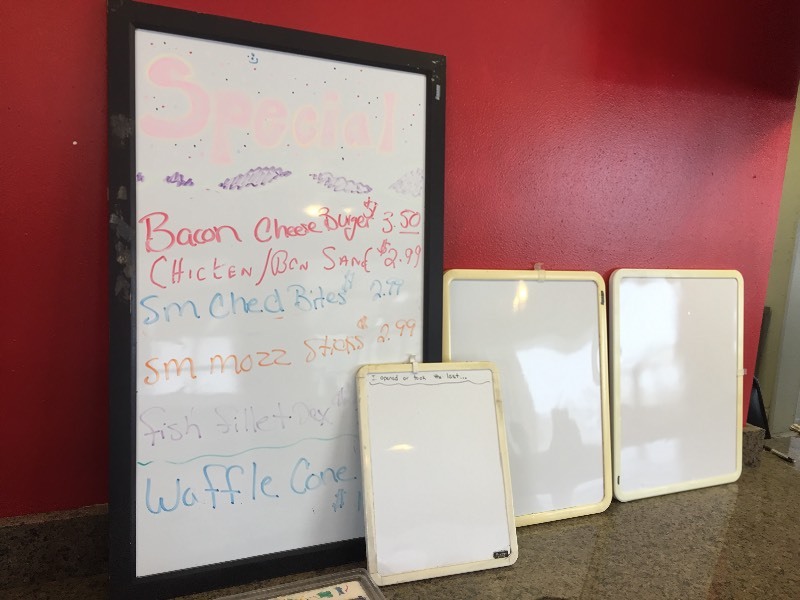 Special
Bacon Cheese Burger $3.50
CHICKEN/BCN SAND $2.99
Sm Ched Bites $2.99
Sm mozz Sticks $2.99
fish fillet
Waffle Cone $1
I opened or took the last...